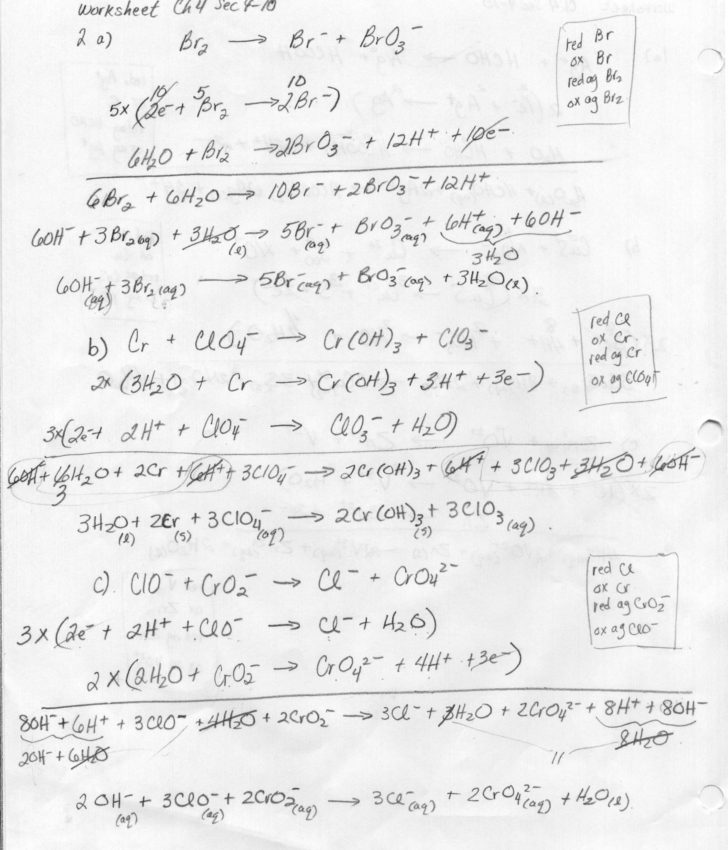 Worksheet Ch 4 Sec 4-10
2 a) Br₂ → Br⁻ + BrO₃⁻
red Br
ox Br
red ag Br₂
ox ag Br₂
10 5 10
5x (2e⁻ + Br₂ → 2Br⁻)
6H₂O + Br₂ → 2BrO₃⁻ + 12H⁺ + 10e⁻
6Br₂ + 6H₂O → 10Br⁻ + 2BrO₃⁻ + 12H⁺
6OH⁻ + 3Br₂(aq) + 3H₂O(l) → 5Br⁻(aq) + BrO₃⁻(aq) + 6H⁺(aq) + 6OH⁻
3H₂O
6OH⁻(aq) + 3Br₂(aq) → 5Br⁻(aq) + BrO₃⁻(aq) + 3H₂O(l).
b) Cr + ClO₄⁻ → Cr(OH)₃ + ClO₃⁻
red Cl
ox Cr
red ag Cr
ox ag ClO₄⁻
2x (3H₂O + Cr → Cr(OH)₃ + 3H⁺ + 3e⁻)
3x(2e⁻ + 2H⁺ + ClO₄⁻ → ClO₃⁻ + H₂O)
6OH⁻ + 6H₂O + 2Cr + 6H⁺ + 3ClO₄⁻ → 2Cr(OH)₃ + 6H⁺ + 3ClO₃ + 3H₂O + 6OH⁻
3
3H₂O(l) + 2Cr(s) + 3ClO₄⁻(aq) → 2Cr(OH)₃(s) + 3ClO₃(aq).
c). ClO⁻ + CrO₂⁻ → Cl⁻ + CrO₄²⁻
red Cl
ox Cr
red ag CrO₂⁻
ox ag ClO⁻
3x (2e⁻ + 2H⁺ + ClO⁻ → Cl⁻ + H₂O)
2x (2H₂O + CrO₂⁻ → CrO₄²⁻ + 4H⁺ + 3e⁻)
8OH⁻ + 6H⁺ + 3ClO⁻ + 4H₂O + 2CrO₂⁻ → 3Cl⁻ + 3H₂O + 2CrO₄²⁻ + 8H⁺ + 8OH⁻
2OH⁻ + 6H₂O 8H₂O
2OH⁻(aq) + 3ClO⁻(aq) + 2CrO₂⁻(aq) → 3Cl⁻(aq) + 2CrO₄²⁻(aq) + H₂O(l).